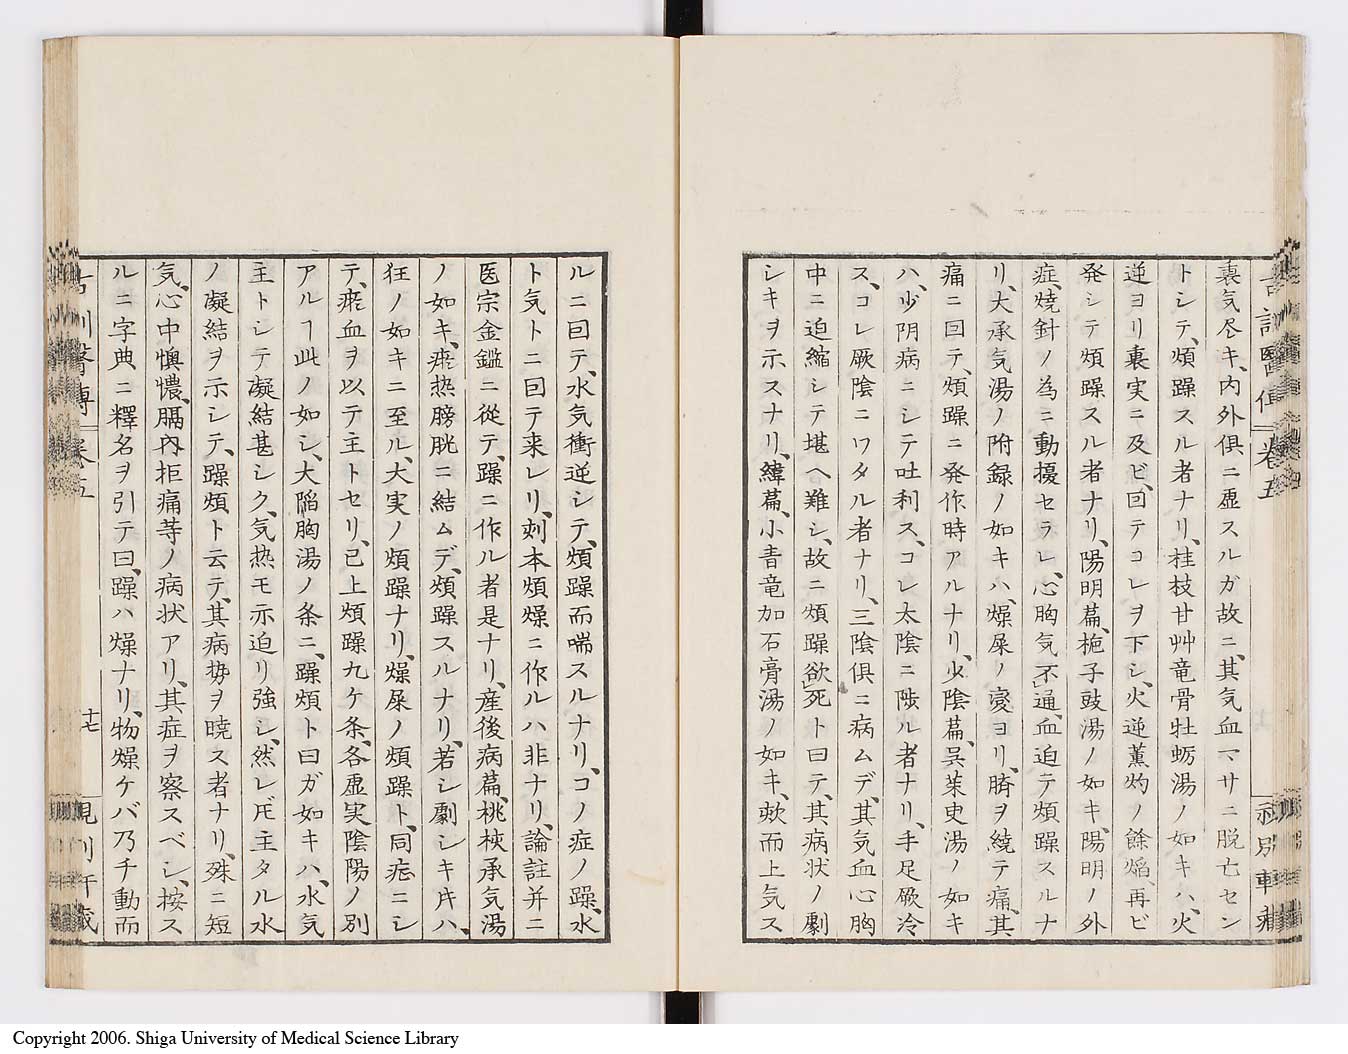 裏気尽キ、内外倶ニ虚スルガ故ニ、其気血マサニ脱亡セン
トシテ、煩躁スル者ナリ、桂枝甘艸竜骨牡蛎湯ノ如キハ、火
逆ヨリ裏実ニ及ビ、回テコレヲ下シ、火逆薫灼ノ餘焔、再ビ
発シテ煩躁スル者ナリ、陽明篇、梔子豉湯ノ如キ、陽明ノ外
症、焼針ノ為ニ動擾セラレ、心胸気不通、血迫テ煩躁スルナ
リ、大承気湯ノ附録ノ如キハ、燥屎ノ変ヨリ、臍ヲ繞テ痛、其
痛ニ回テ、煩躁ニ発作時アルナリ、少陰篇、呉茱吏湯ノ如キ
ハ、少阴病ニシテ吐利ス、コレ太陰ニ陟ル者ナリ、手足厥冷
ス、コレ厥陰ニワタル者ナリ、三陰倶ニ病ムデ、其気血心胸
中ニ迫縮シテ堪ヘ難シ、故ニ煩躁欲死ト曰テ、其病状ノ劇
シキヲ示スナリ、緯篇、小青竜加石膏湯ノ如キ、欬而上気ス
ルニ回テ、水気衝逆シテ、煩躁而喘スルナリ、コノ症ノ躁、水
ト気トニ回テ来レリ、刻本煩燥ニ作ルハ非ナリ、論註并ニ
医宗金鑑ニ従テ、躁ニ作ル者是ナリ、産後病篇、桃梜承気湯
ノ如キ、瘀热膀胱ニ結ムデ、煩躁スルナリ、若シ劇シキ片ハ、
狂ノ如キニ至ル、大実ノ煩躁ナリ、燥屎ノ煩躁ト、同症ニシ
テ、瘀血ヲ以テ主トセリ、已上煩躁九ケ条、各虚実陰陽ノ別
アルヿ此ノ如シ、大陥胸湯ノ条ニ、躁煩ト曰ガ如キハ、水気
主トシテ凝結甚シク、気热モ亦迫リ強シ、然レ𪜈主タル水
ノ凝結ヲ示シテ、躁煩ト云テ、其病勢ヲ暁ス者ナリ、殊ニ短
気、心中懊憹、膈内拒痛等ノ病状アリ、其症ヲ察スベシ、按ス
ルニ字典ニ釋名ヲ引テ曰、躁ハ燥ナリ、物燥ケバ乃チ動而
卷五
十七